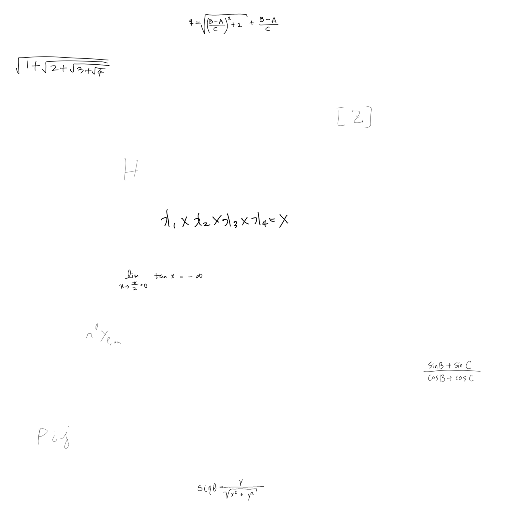 4=√((B-A/C)²+2) + B-A/C
√1+√2+√3+√4
[2]
H
x₁ × x₂ × x₃ × x₄ = X
lim x→π/2+0 tan x = -∞
sinB + sinC / cosB + cosC
sinθ = y/√x²+y²